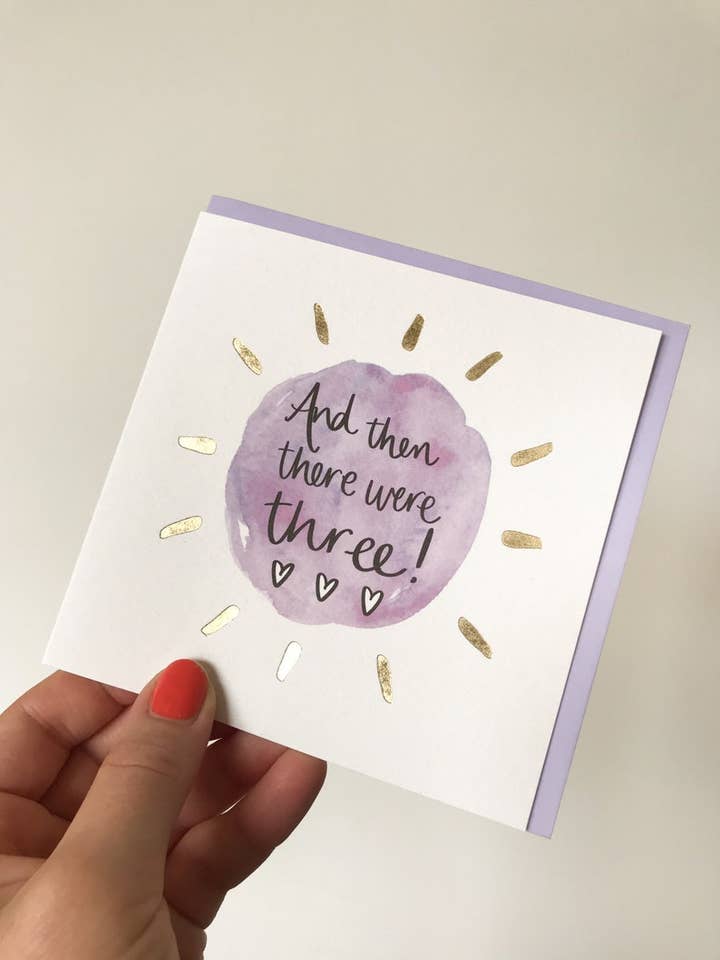 And then
there were
three!